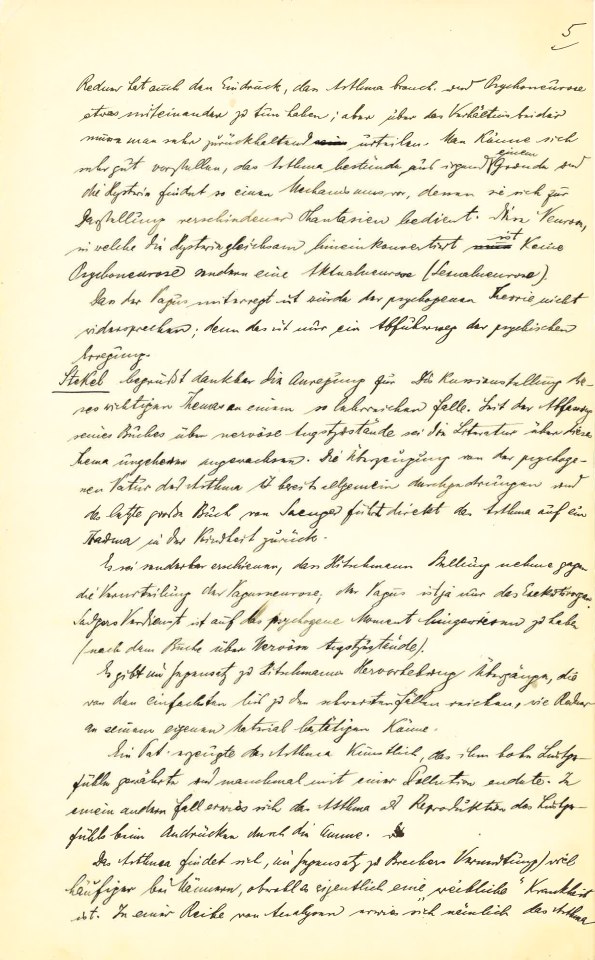 5
Redner hat auch den Eindruck, dass Asthma bronch. und Psychoneurose
etwas miteinander zu tun haben; aber über das Verhältnis beider
müsse man sehr zurückhaltend urteilen. Man könne sich
sehr gut vorstellen, das Asthma bestünde aus irgend einem Grunde und
die Hysterie findet so einen Mechanismus vor, dessen sie sich zur
Darstellung verschiedener Phantasien bedient. Diese Neurose,
in welche die Hysterie gleichsam hineinkonvertiert ist keine
Psychoneurose sondern eine Aktualneurose (Sexualneurose).
Dass der Vagus miterregt ist würde der psychogenen Theorie nicht
widersprechen; denn das ist nur ein Abfuhrweg der psychischen
Erregung.
Stekel begrüßt dankbar die Anregung für die Klarstellung die-
ses wichtigen Themas an einem so lehrreichen Falle. Seit der Abfassung
seines Buches über nervöse Angstzustände sei die Literatur über dieses
Thema ungeheuer angewachsen. Die Überzeugung von der psychoge-
nen Natur des Asthma ist bereits allgemein durchgedrungen und
das letzte große Buch von Saenger führt direkt das Asthma auf ein
Trauma in der Kindheit zurück.
Es sei sonderbar erschienen, dass Hitschmann Stellung nehme gegen
die Verurteilung der Vagusneurose, der Vagus ist ja nur das Exekutivorgan.
Sadgers Verdienst ist auf das psychogene Moment hingewiesen zu haben
(nach dem Buche über nervöse Angstzustände).
Es gibt im Gegensatz zu Hitschmanns Hervorhebung Übergänge, die
von den einfachsten bis zu den schwersten Fällen reichen, wie Redner
an seinem eigenen Material bestätigen könne.
Ein Pat. erzeugte das Asthma künstlich, das ihm hohe Lustge-
fühle gewährte und manchmal mit einer Pollution endete. In
einem andern Fall erwies sich das Asthma als Reproduktion des Lustge-
fühls beim Andrücken durch die Amme.
Das Asthma findet sich, im Gegensatz zu Brechers Vermutung, viel
häufiger bei Männern, obwohl es eigentlich eine „weibliche" Krankheit
ist. In einer Reihe von Analysen erwies sich nämlich das Asthma